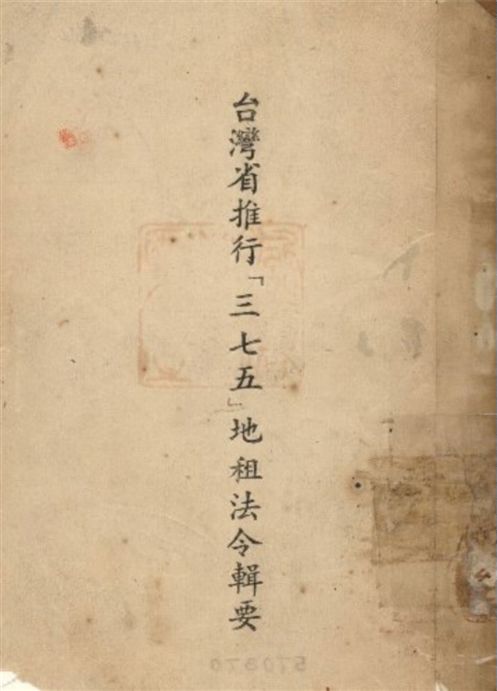 台灣省推行「三七五」地租法令輯要
570870